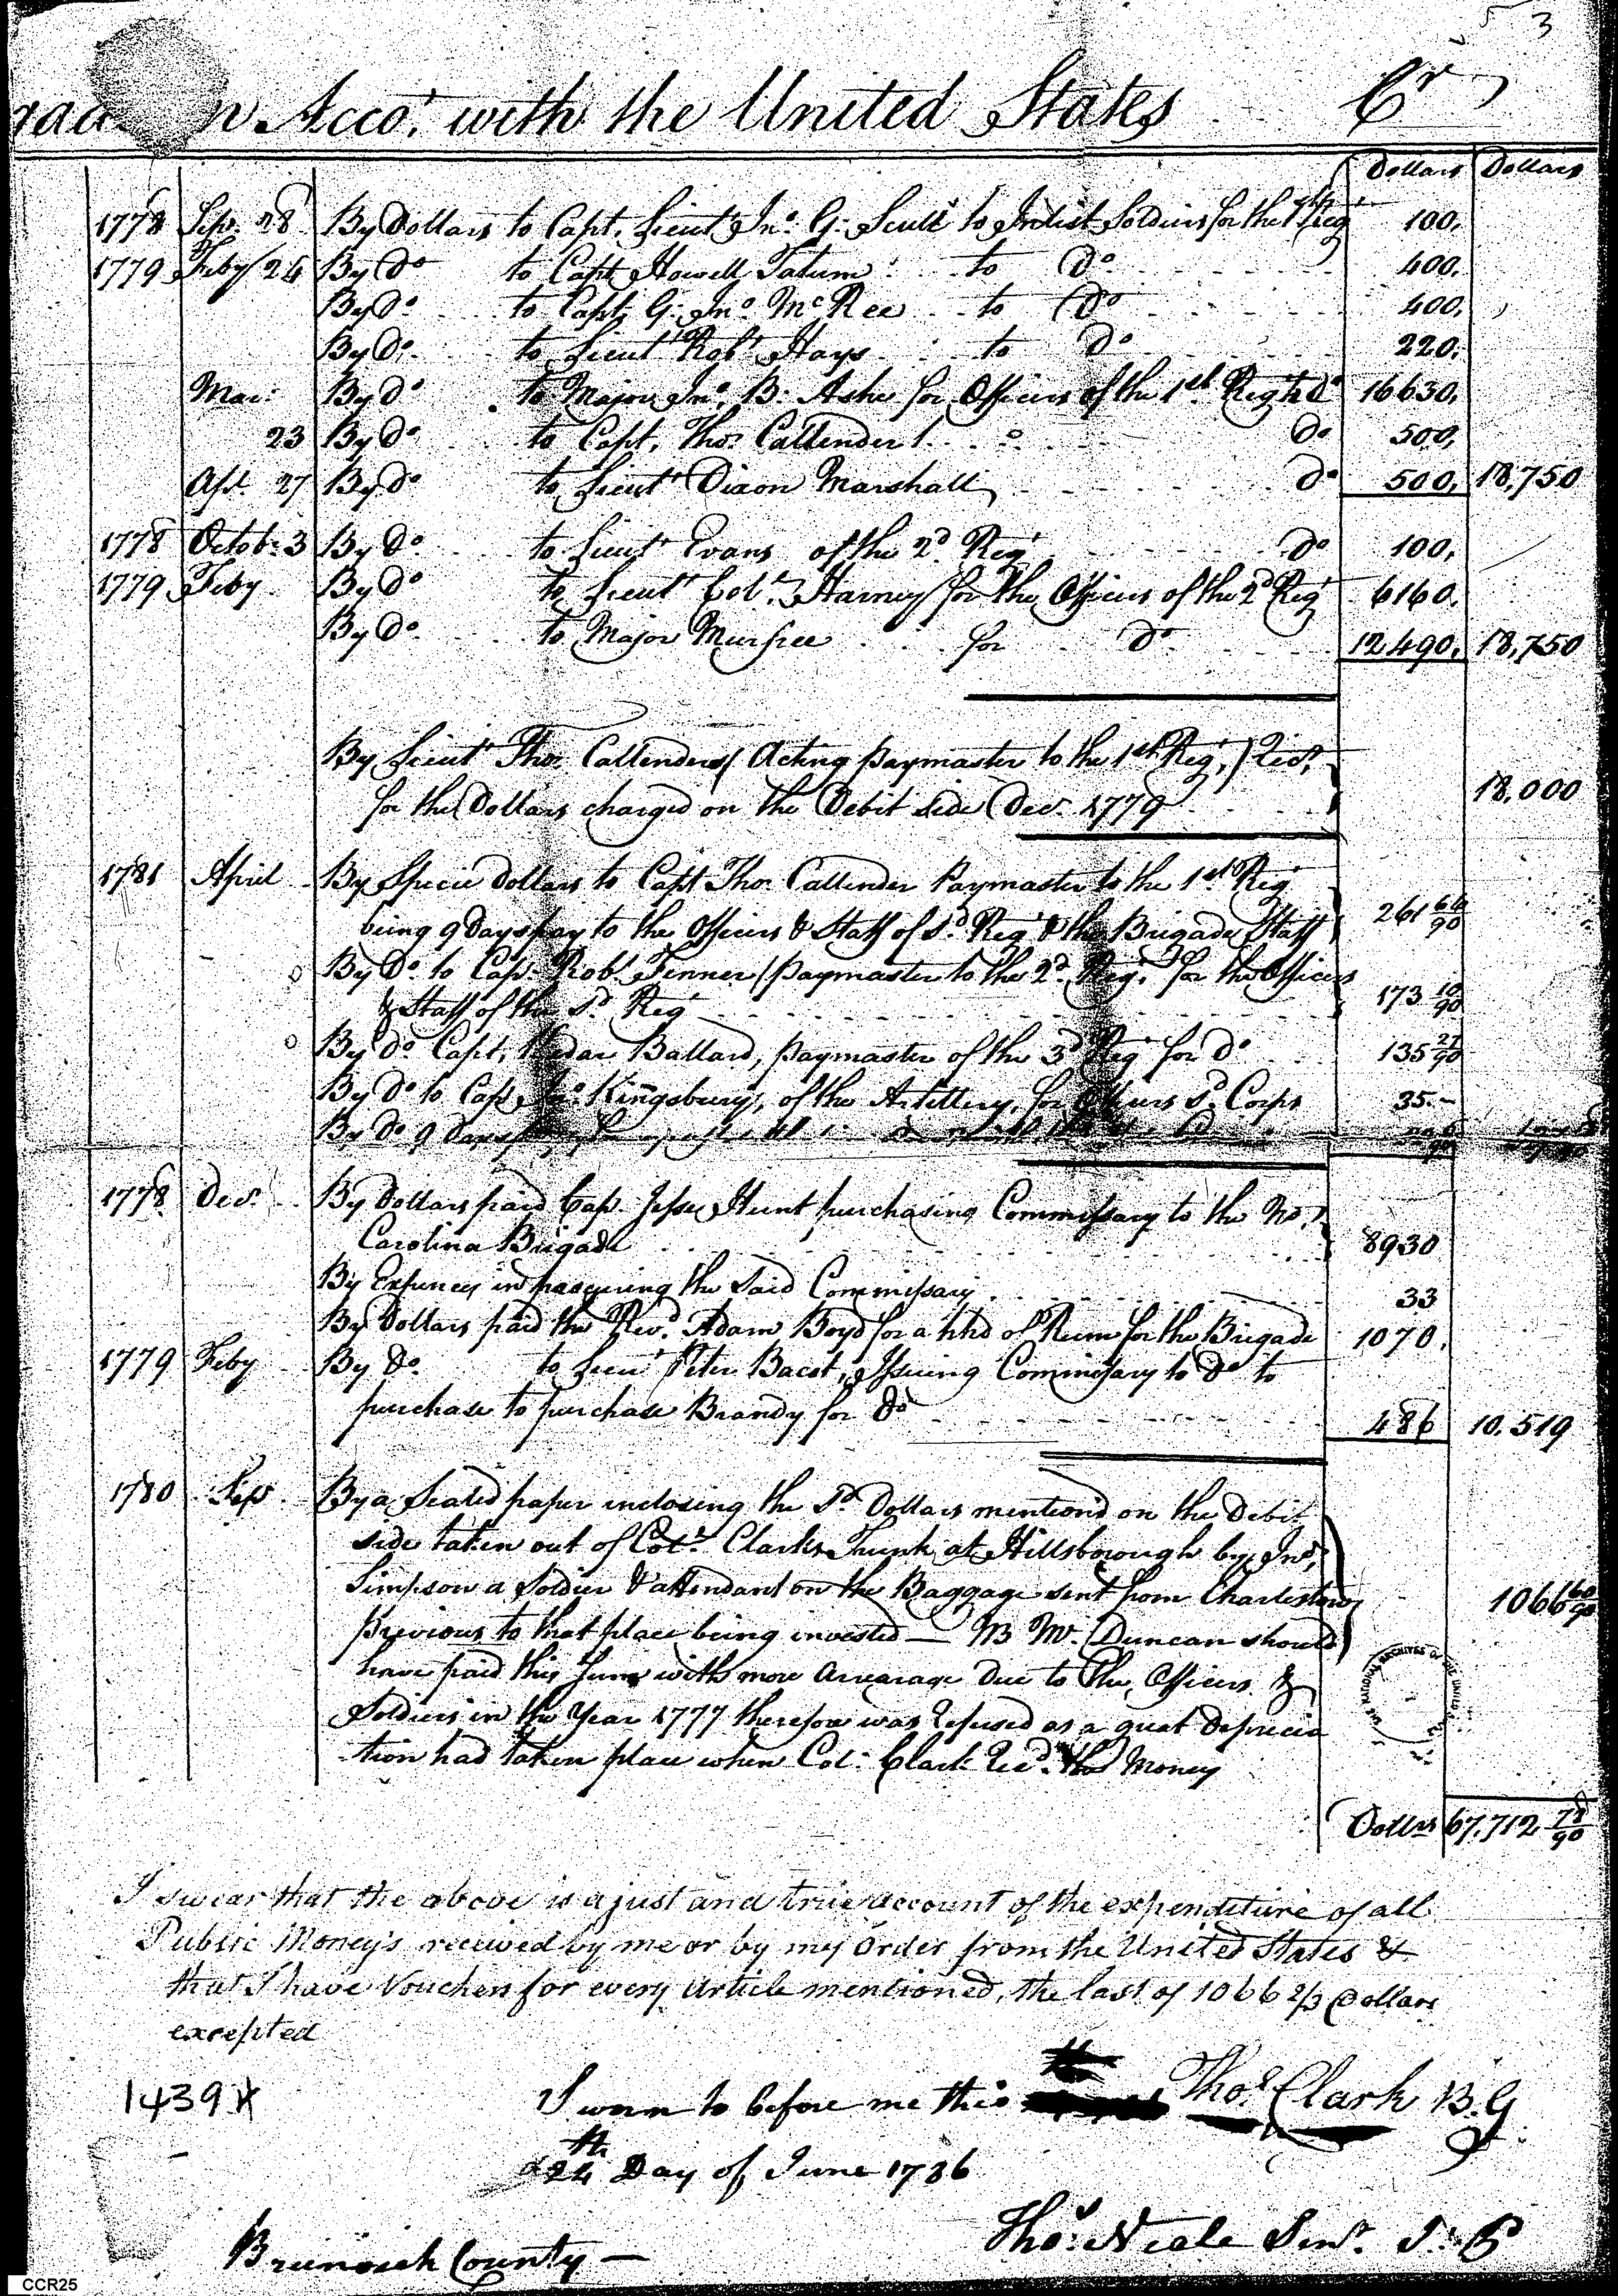 3
n Acco.t with the United States Cr
Dollars Dollars
1778 Sep. 28 By Dollars to Capt. Lieut Jno. G. Scull to Inlist Soldiers for the 1st Reg 100.
1779 Feby 24 By Do to Capt Howell Tatum to Do 400.
By Do to Capt. G. Jno. McRee to Do 400.
By Do to Lieut Robt Hays to Do 220.
Mar: By Do to Major Jno. B. Ashe for Officers of the 1st Regt Do 16630.
23 By Do to Capt. Thos Callender Do 500.
Apl. 27 By Do to Lieut Dixon Marshall Do 500. 18,750
1778 Octob. 3 By Do to Lieut Evans of the 2d Reg Do 100.
1779 Feby By Do to Lieut Col. Harney for the Officers of the 2d Reg 6160.
By Do to Major Murfree for Do 12490. 18,750
By Lieut Thos Callender (Acting paymaster to the 1st Reg.)
for the Dollars charged on the Debit side Dec. 1779 18,000
1781 April By Specie dollars to Capt Thos Callender Paymaster to the 1st Reg
being 9 Days pay to the Officers & Staff of Sd Reg & the Brigade Staff 261 64/90
By Do to Cap. Robt Fenner (paymaster to the 2d Reg. for the Officers
& Staff of the Sd Reg 173 10/90
By Do Capt. Kedar Ballard, paymaster of the 3d Reg for Do 135 27/90
By Do to Cap Jno. Kingsbury, of the Artillery, for Officers Sd Corps 35.-
By Do 9 Days
1778 Decr. By Dollars paid Cap. Jesse Hunt purchasing Commissary to the No.
Carolina Brigade 8930
By Expences in procuring the Said Commissary 33
By Dollars paid the Revd. Adam Boyd for a hhd of Rum for the Brigade 1070.
1779 Feby By Do. to Lieut Peter Bacot, Issuing Commissary to Do to
purchase to purchase Brandy for Do 486 10.519
1780 Sepr By a Sealed paper inclosing the Sd Dollars mentiond on the Debit
side taken out of Col. Clarks Trunk at Hillsborough by Jno.
Simpson a Soldier & attendant on the Baggage sent from Charlestown
previous to that place being invested — NB Mr. Duncan should 1066 60/90
have paid this Sum with more arrearage Due to the Officers &
Soldiers in the Year 1777 therefore was refused as a great deprecia
tion had taken place when Col. Clark Recd. the Money
Dollars 67,712 78/90
I swear that the above is a just and true account of the expenditure of all
Public Money's received by me or by my Order from the United States &
that I have Vouchers for every Article mentioned, the last of 1066 2/3 Dollars
excepted
1439 Sworn to before me this Thos. Clark B.G
24th Day of June 1786
Thos. Neale Senr. J. P
Brunswick County —
CCR25